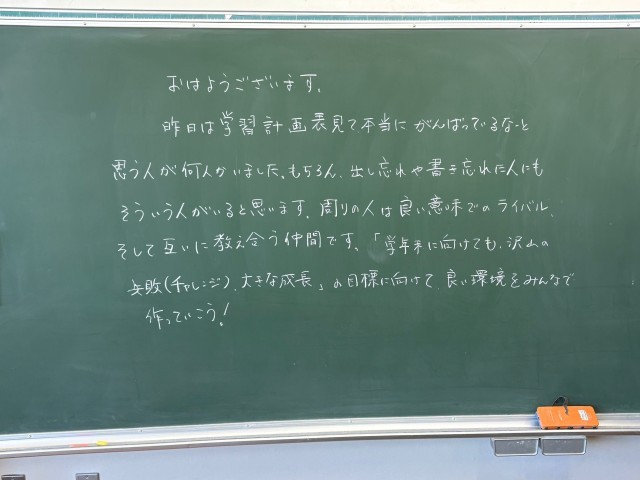 おはようございます。
昨日は学習計画表見て本当にがんばっているなと
思う人が何人かいました。もちろん、出し忘れや書き忘れた人にも
そういう人がいると思います。周りの人は良い意味でのライバル、
そして互いに教え合う仲間です。「学年末に向けても、沢山の
失敗(チャレンジ)、大きな成長」の目標に向けて、良い環境をみんなで
作っていこう!